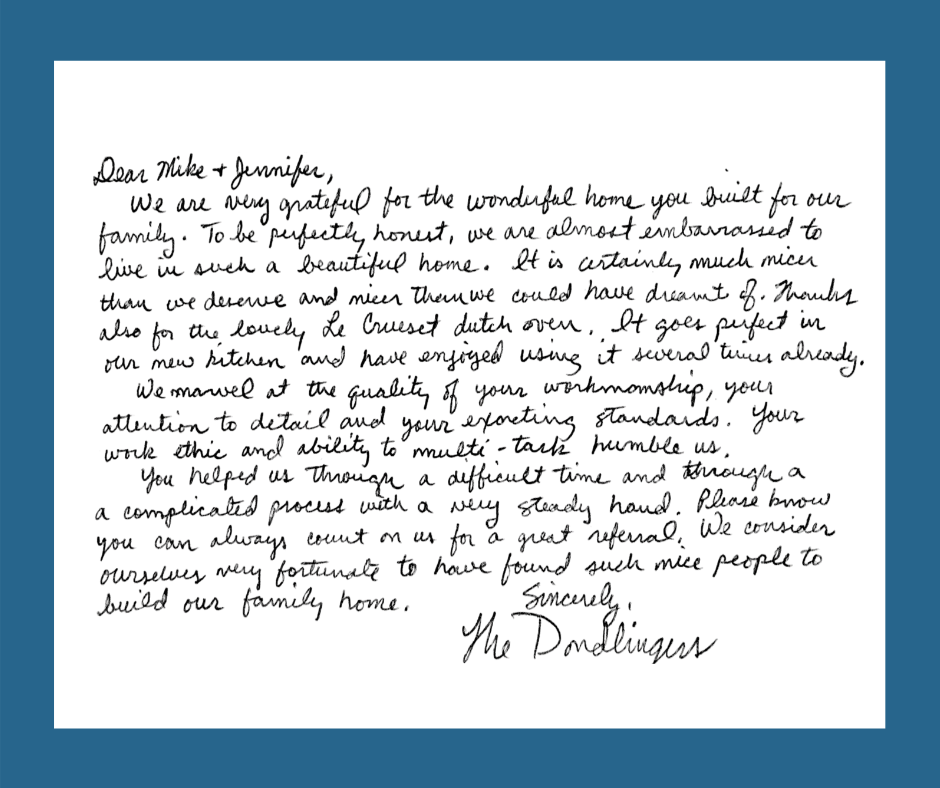 Dear Mike + Jennifer,
We are very grateful for the wonderful home you built for our
family. To be perfectly honest, we are almost embarrassed to
live in such a beautiful home. It is certainly much nicer
than we deserve and nicer than we could have dreamt of. Thanks
also for the lovely Le Crueset dutch oven. It goes perfect in
our new kitchen and have enjoyed using it several times already.
We marvel at the quality of your workmanship, your
attention to detail and your exacting standards. Your
work ethic and ability to multi-task humble us.
You helped us through a difficult time and through a
a complicated process with a very steady hand. Please know
you can always count on us for a great referral. We consider
ourselves very fortunate to have found such nice people to
build our family home. Sincerely,
The Dondlingers